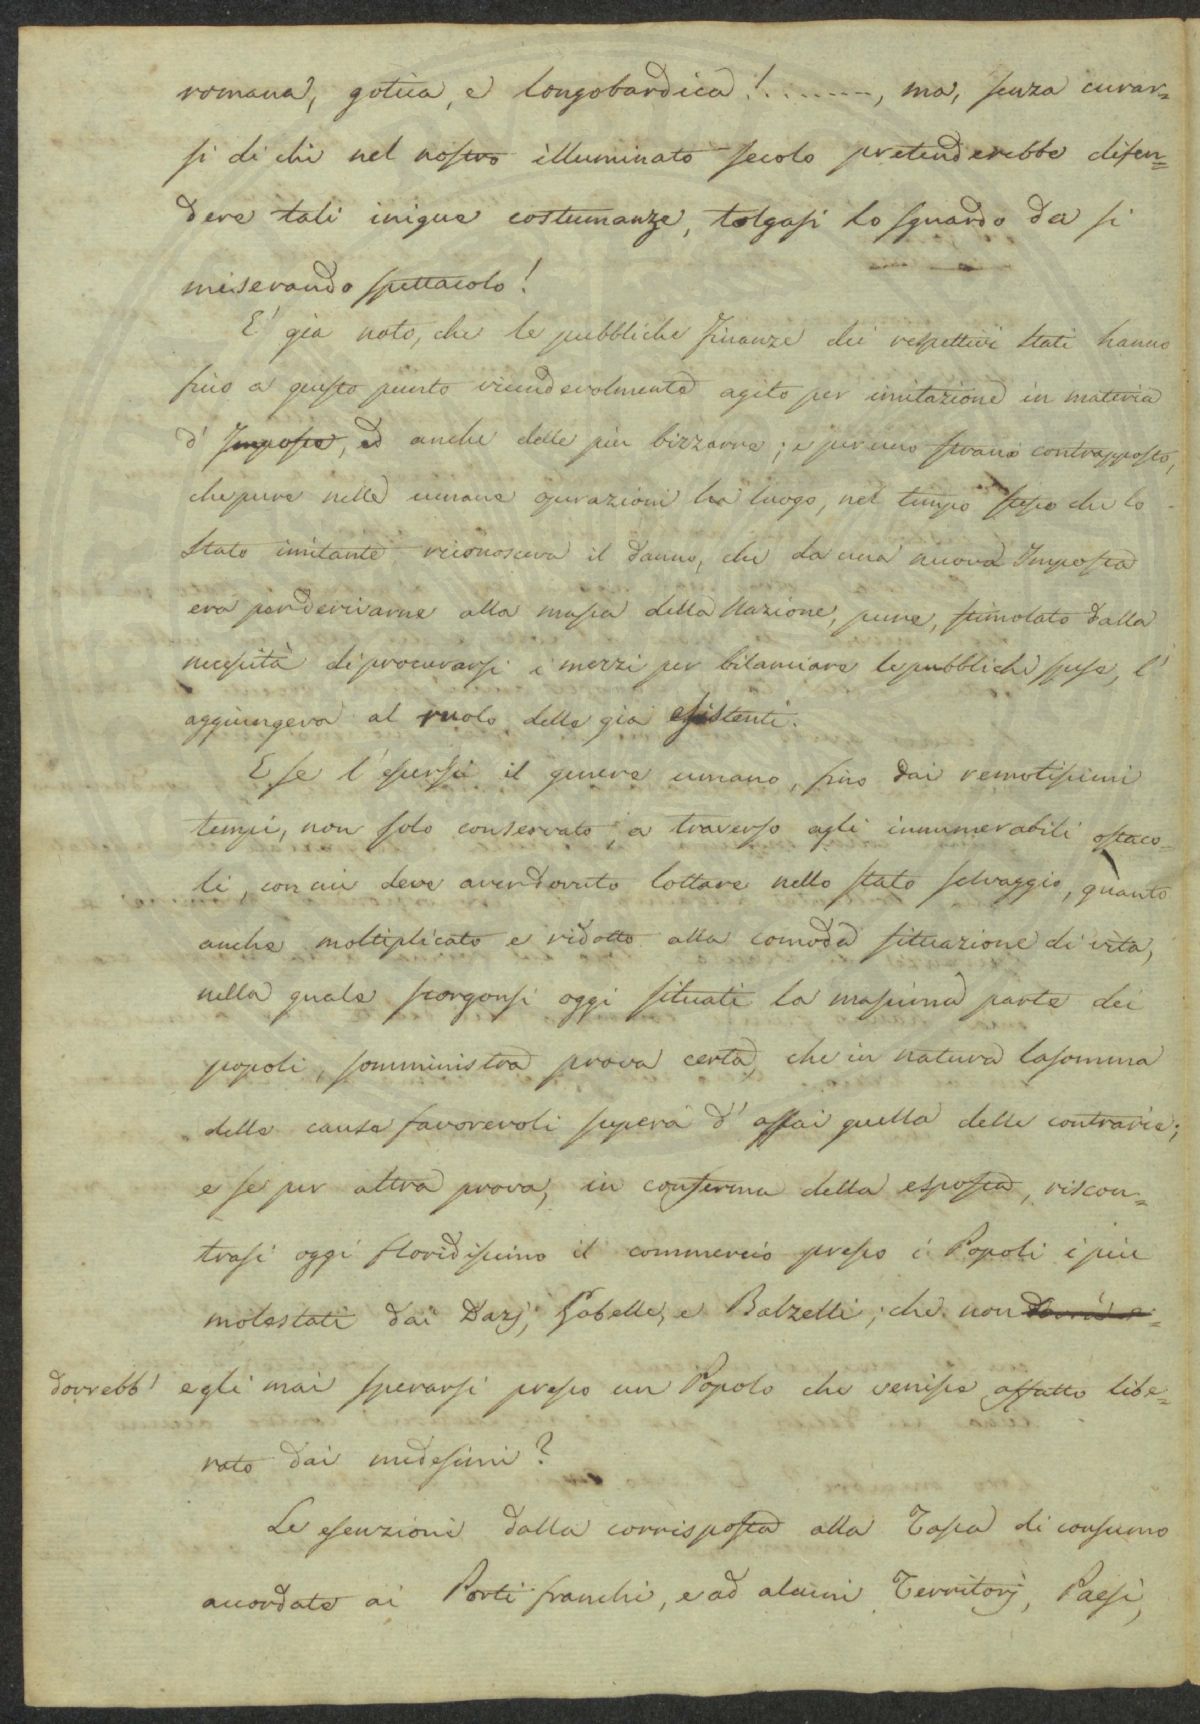 romana, gotica, e longobardica!........, ma, senza curar=
si di chi nel nostro illuminato secolo pretenderebbe difen=
dere tali inique costumanze, tolgasi lo sguardo da si
miserando spettacolo!
E' già noto, che le pubbliche finanze dei respettivi Stati hanno
fino a questo punto vicendevolmente agito per imitazione in materia
d' Imposte, ed anche delle più bizzarre; e per uno strano contrapposto,
che pure nelle umane operazioni ha luogo, nel tempo stesso che lo
Stato imitante riconosceva il danno, che da una nuova Imposta
era per derivarne alla massa della Nazione, pure, stimolato dalla
necessità di procurarsi i mezzi per bilanciare le pubbliche spese, l'
aggiungeva al ruolo delle già esistenti.
E se l'essersi il genere umano, fino dai remotissimi
tempi, non solo conservato, a traverso agli innumerabili ostaco=
li, con cui deve aver dovuto lottare nello stato selvaggio, quanto
anche moltiplicato e ridotto alla comoda situazione di vita,
nella quale scorgonsi oggi situati la massima parte dei
popoli, somministra prova certa, che in natura la somma
delle cause favorevoli supera d' assai quella delle contrarie;
e se per altra prova, in conferma della esposta, riscon=
trasi oggi floridissimo il commercio presso i Popoli i più
molestati dai Dazj, Gabelle, e Balzelli; che non
dovrebb' egli mai sperarsi presso un Popolo che venisse affatto libe=
rato dai medesimi?
Le esenzioni dalla corrisposta alla Tassa di consumo
accordate ai Porti franchi, e ad alcuni Territorj, Paesi,